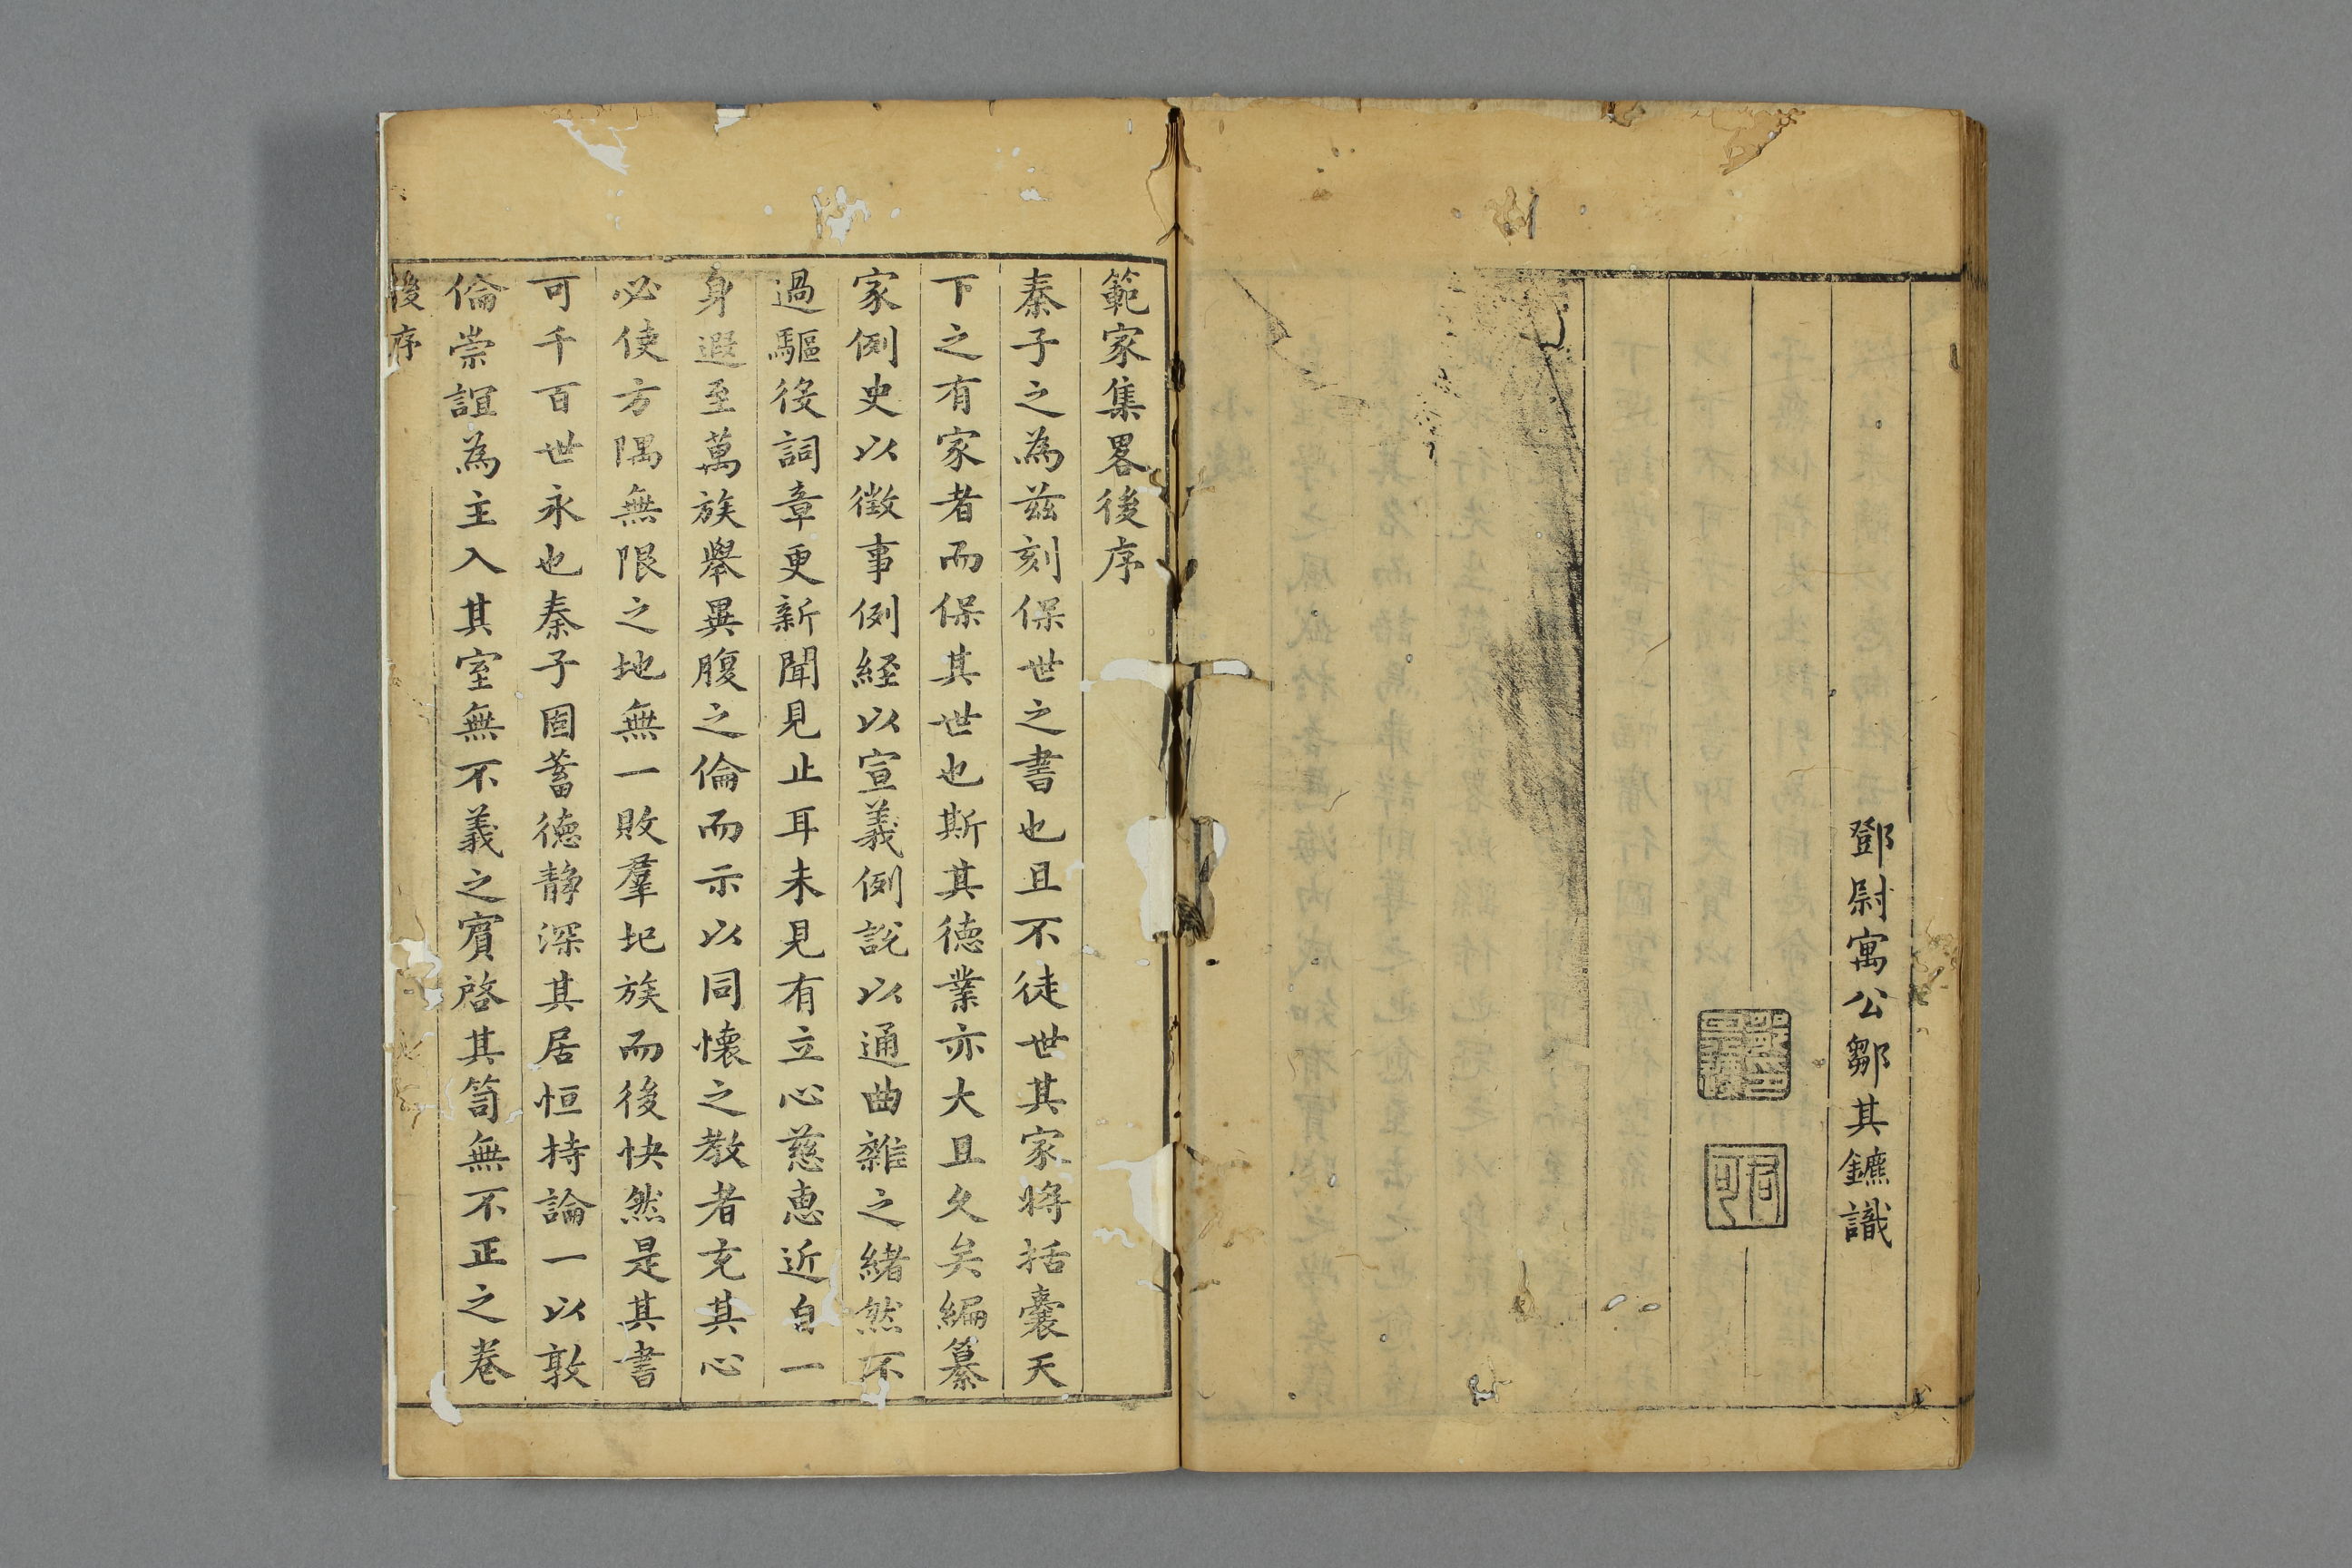 鄧尉寓公鄒其鑣識
範家集畧後序
秦子之為茲刻保世之書也且不徒世其家將括囊天
下之有家者而保其世也斯其德業亦大且久矣編纂
家例史以徵事例経以宣義例說以通曲雜之緒然不
過驅役詞章更新聞見止耳未見有立心慈惠近自一
身遐至萬族舉異腹之倫而示以同懷之教者充其心
必使方隅無限之地無一敗羣圮族而後快然是其書
可千百世永也秦子固蓄德静深其居恒持論一以敦
倫崇誼為主入其室無不義之賓啓其笥無不正之卷
後序